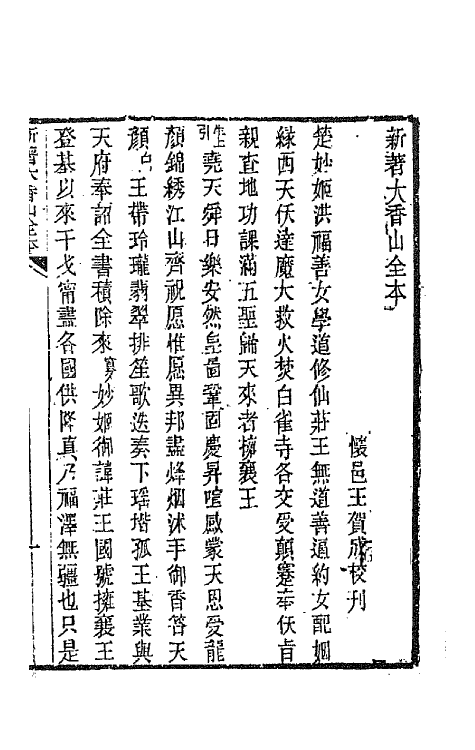 新著大香山全本
懷邑王賀成校刊
楚妙姬洪福善女學道修仙莊王無道善逼約女配姻
緣西天伏達魔大救火焚白雀寺各交受顛蹇奉伏旨
親查地功課滿五聖歸天來者擁襄王
引 堯天舜日樂安然皇啚鞏固慶昇喧感蒙天恩受龍
顏錦綉江山齊祝愿惟愿異邦盡烽烟沐手御香答天
顏 王帶玲瓏翡翠排笙歌迭奏下瑶堦孤王基業與
天府奉詔全書積除來 妙姬御諱莊王國號擁襄王
登基以來干戈甯盡各國供降真乃福澤無疆也只是
新著大香山全本